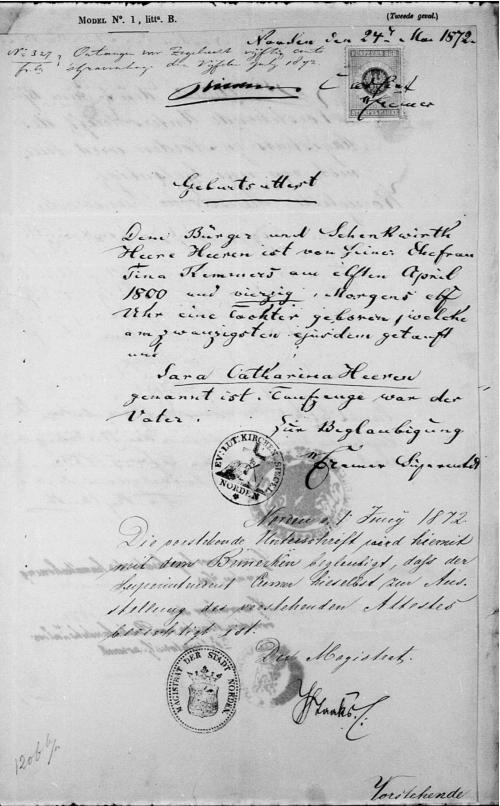 MODEL Nº. 1, litt. B.
(Tweede gezal.)
Norden den 24t Mai 1872.
No. 327 Ontvangen voor Zegelrecht vijftig cents
den Vijfde July 1872.
Cremer
Geburtsattest
Dem Bürger und Schenkwirth
Heere Heeren ist von seiner Ehefrau
Tina Remmers am elften April
1800 und vierzig, Morgens elf
Uhr eine Tochter geboren, welche
am zwanzigsten ejusdem getauft
und
Sara Catharina Heeren
genannt ist. Taufzeuge war der
Vater.
Zur Beglaubigung
Cremer
EV. LUT. KIRCHEN SIEGEL
NORDEN
Norden, 1 Juny 1872
Die vorstehende Unterschrift wird hiermit
mit dem Bemerken beglaubigt, daß der
Superintendent Cremer hieselbst zur Aus-
stellung des vorstehenden Attestes
berechtigt ist.
Der Magistrat.
MAGISTRAT DER STADT NORDEN
1206
Vorstehende